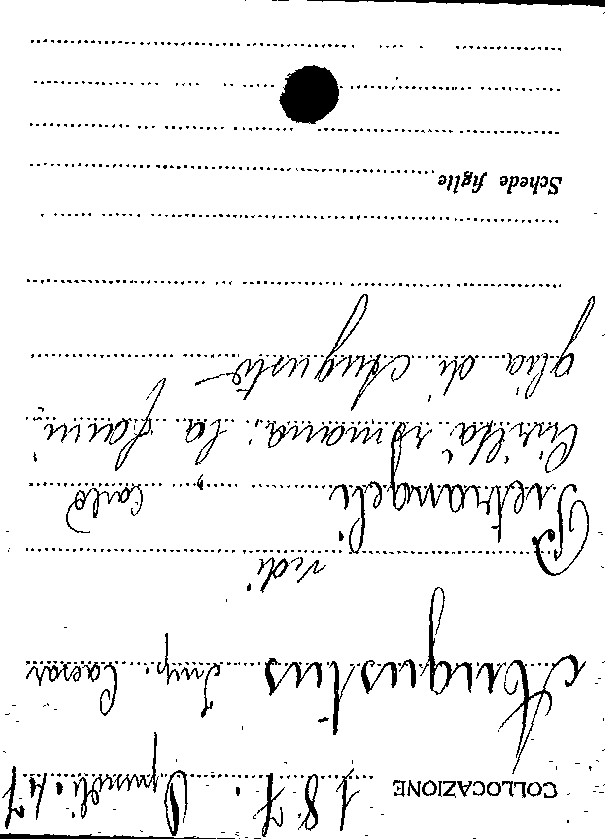 COLLOCAZIONE 187. Opuscoli. 47
Augustus Imp. Caesar
vedi
Pietrangeli, Carlo
Civiltà romana; la fami
glia di Augusto
Schede figlie